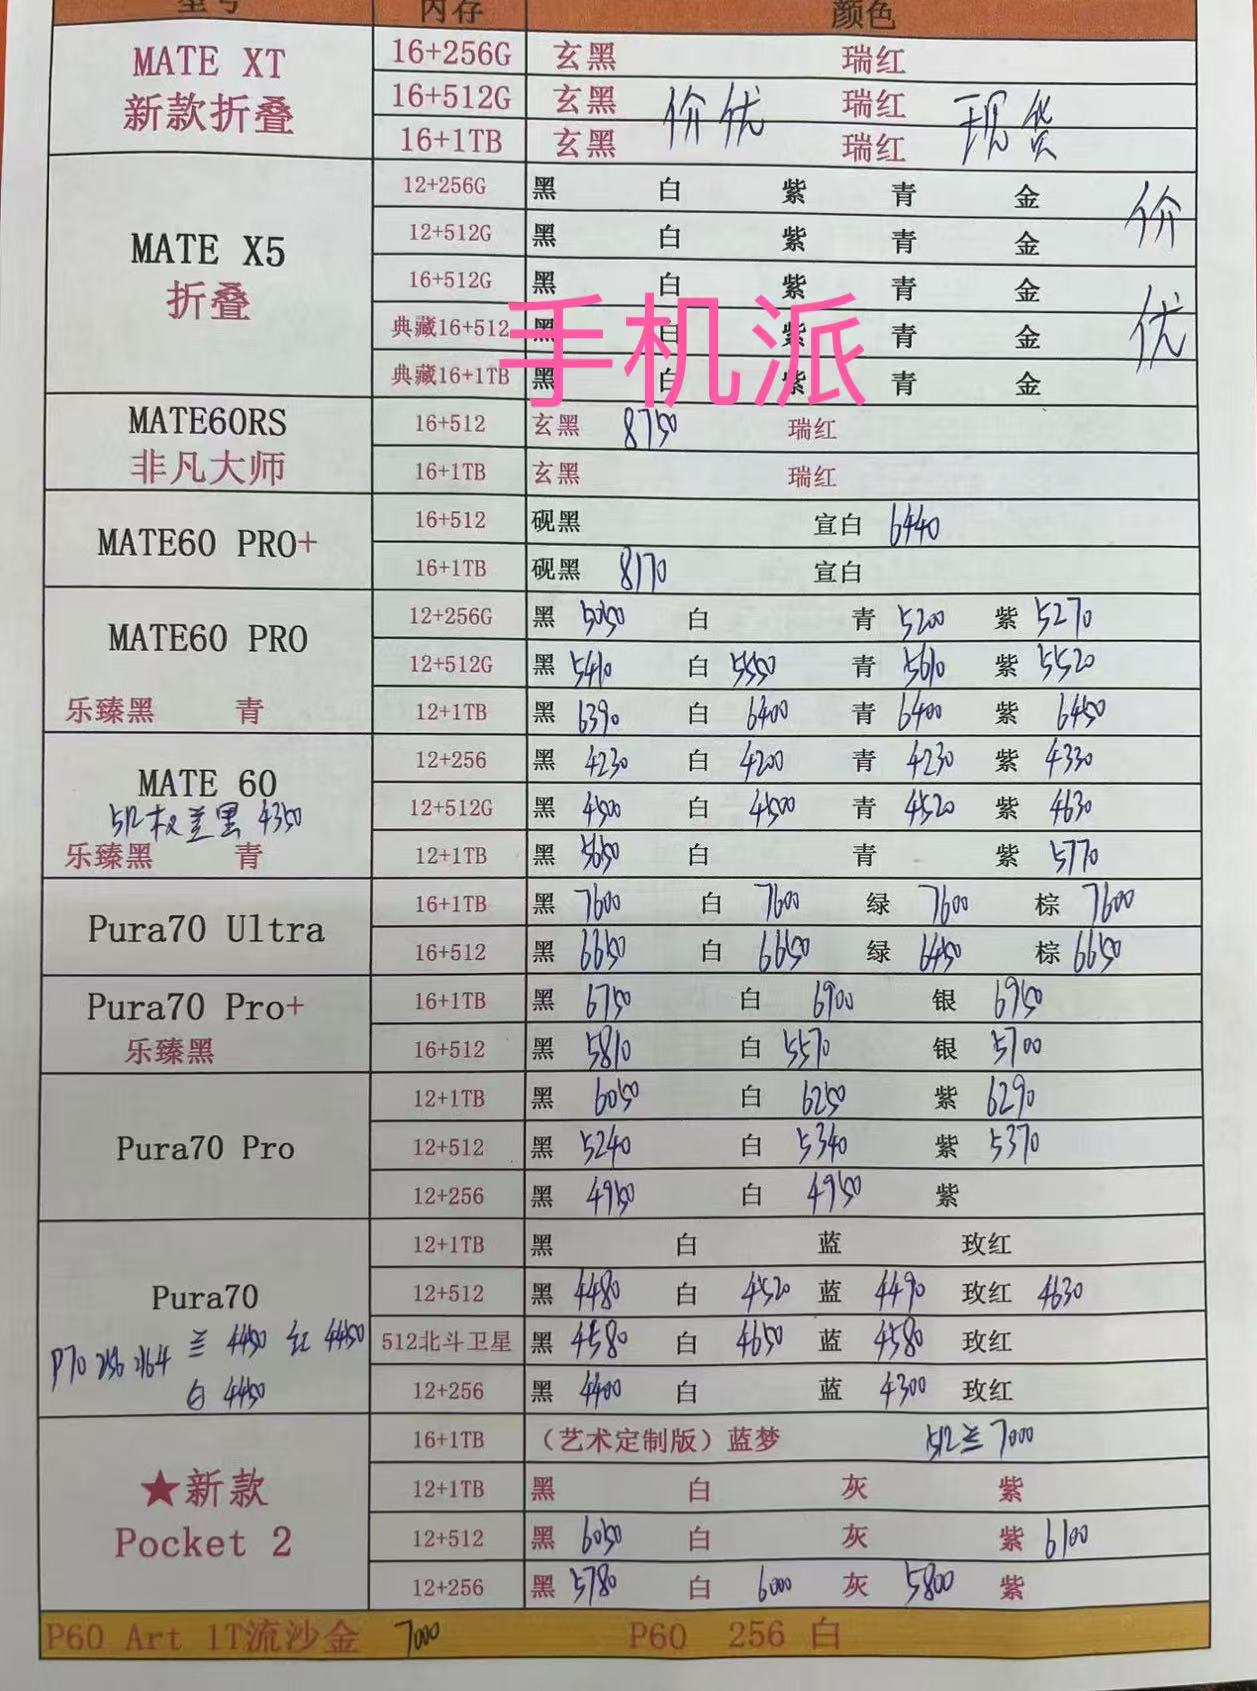 型号 内存 颜色
MATE XT
新款折叠
16+256G 玄黑 瑞红
16+512G 玄黑 价优 瑞红 现货
16+1TB 玄黑 瑞红
MATE X5
折叠
12+256G 黑 白 紫 青 金 价
12+512G 黑 白 紫 青 金
16+512G 黑 白 紫 青 金 优
典藏16+512 黑 白 紫 青 金
典藏16+1TB 黑 白 紫 青 金
手机派
MATE60RS
非凡大师
16+512 玄黑 8750 瑞红
16+1TB 玄黑 瑞红
MATE60 PRO+
16+512 砚黑 宣白 6440
16+1TB 砚黑 8170 宣白
MATE60 PRO
乐臻黑 青
12+256G 黑 5050 白 青 5200 紫 5270
12+512G 黑 5410 白 5550 青 5610 紫 5520
12+1TB 黑 6390 白 6400 青 6400 紫 6450
MATE 60
512 兰黑 4350
乐臻黑 青
12+256 黑 4230 白 4200 青 4230 紫 4330
12+512G 黑 4500 白 4500 青 4520 紫 4630
12+1TB 黑 5650 白 青 紫 5770
Pura70 Ultra
16+1TB 黑 7600 白 7600 绿 7600 棕 7600
16+512 黑 6650 白 6650 绿 6450 棕 6650
Pura70 Pro+
乐臻黑
16+1TB 黑 6750 白 6900 银 6950
16+512 黑 5810 白 5570 银 5700
Pura70 Pro
12+1TB 黑 6050 白 6250 紫 6290
12+512 黑 5240 白 5340 紫 5370
12+256 黑 4950 白 4950 紫
Pura70
P70 256 兰 4450 红 4450
白 4450
12+1TB 黑 白 蓝 玫红
12+512 黑 4480 白 4520 蓝 4490 玫红 4630
512北斗卫星 黑 4580 白 4650 蓝 4580 玫红
12+256 黑 4400 白 蓝 4300 玫红
★新款
Pocket 2
16+1TB （艺术定制版）蓝梦 512兰 7000
12+1TB 黑 白 灰 紫
12+512 黑 6050 白 灰 紫 6100
12+256 黑 5780 白 6000 灰 5800 紫
P60 Art 1T流沙金 7000 P60 256 白